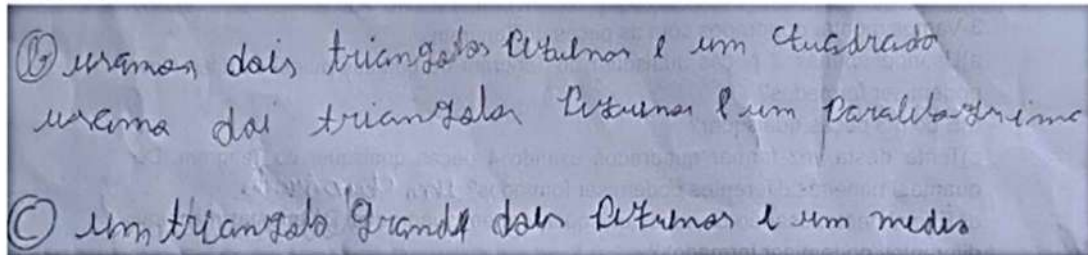 B usamos dois triangolos Pequenos e um Cuadrado
usamo doi triangolos Pequenos e um Paralelogrimo
C um triangolo grande dois Pequenos e um medio